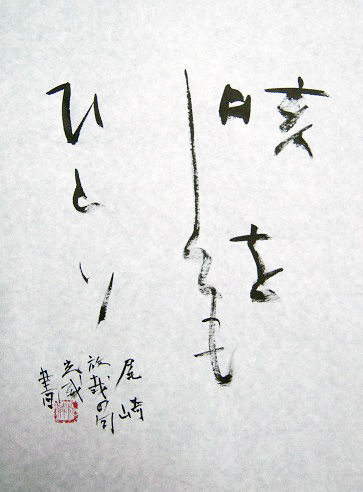 咳を
しても
ひとり
尾崎
放哉の句
書